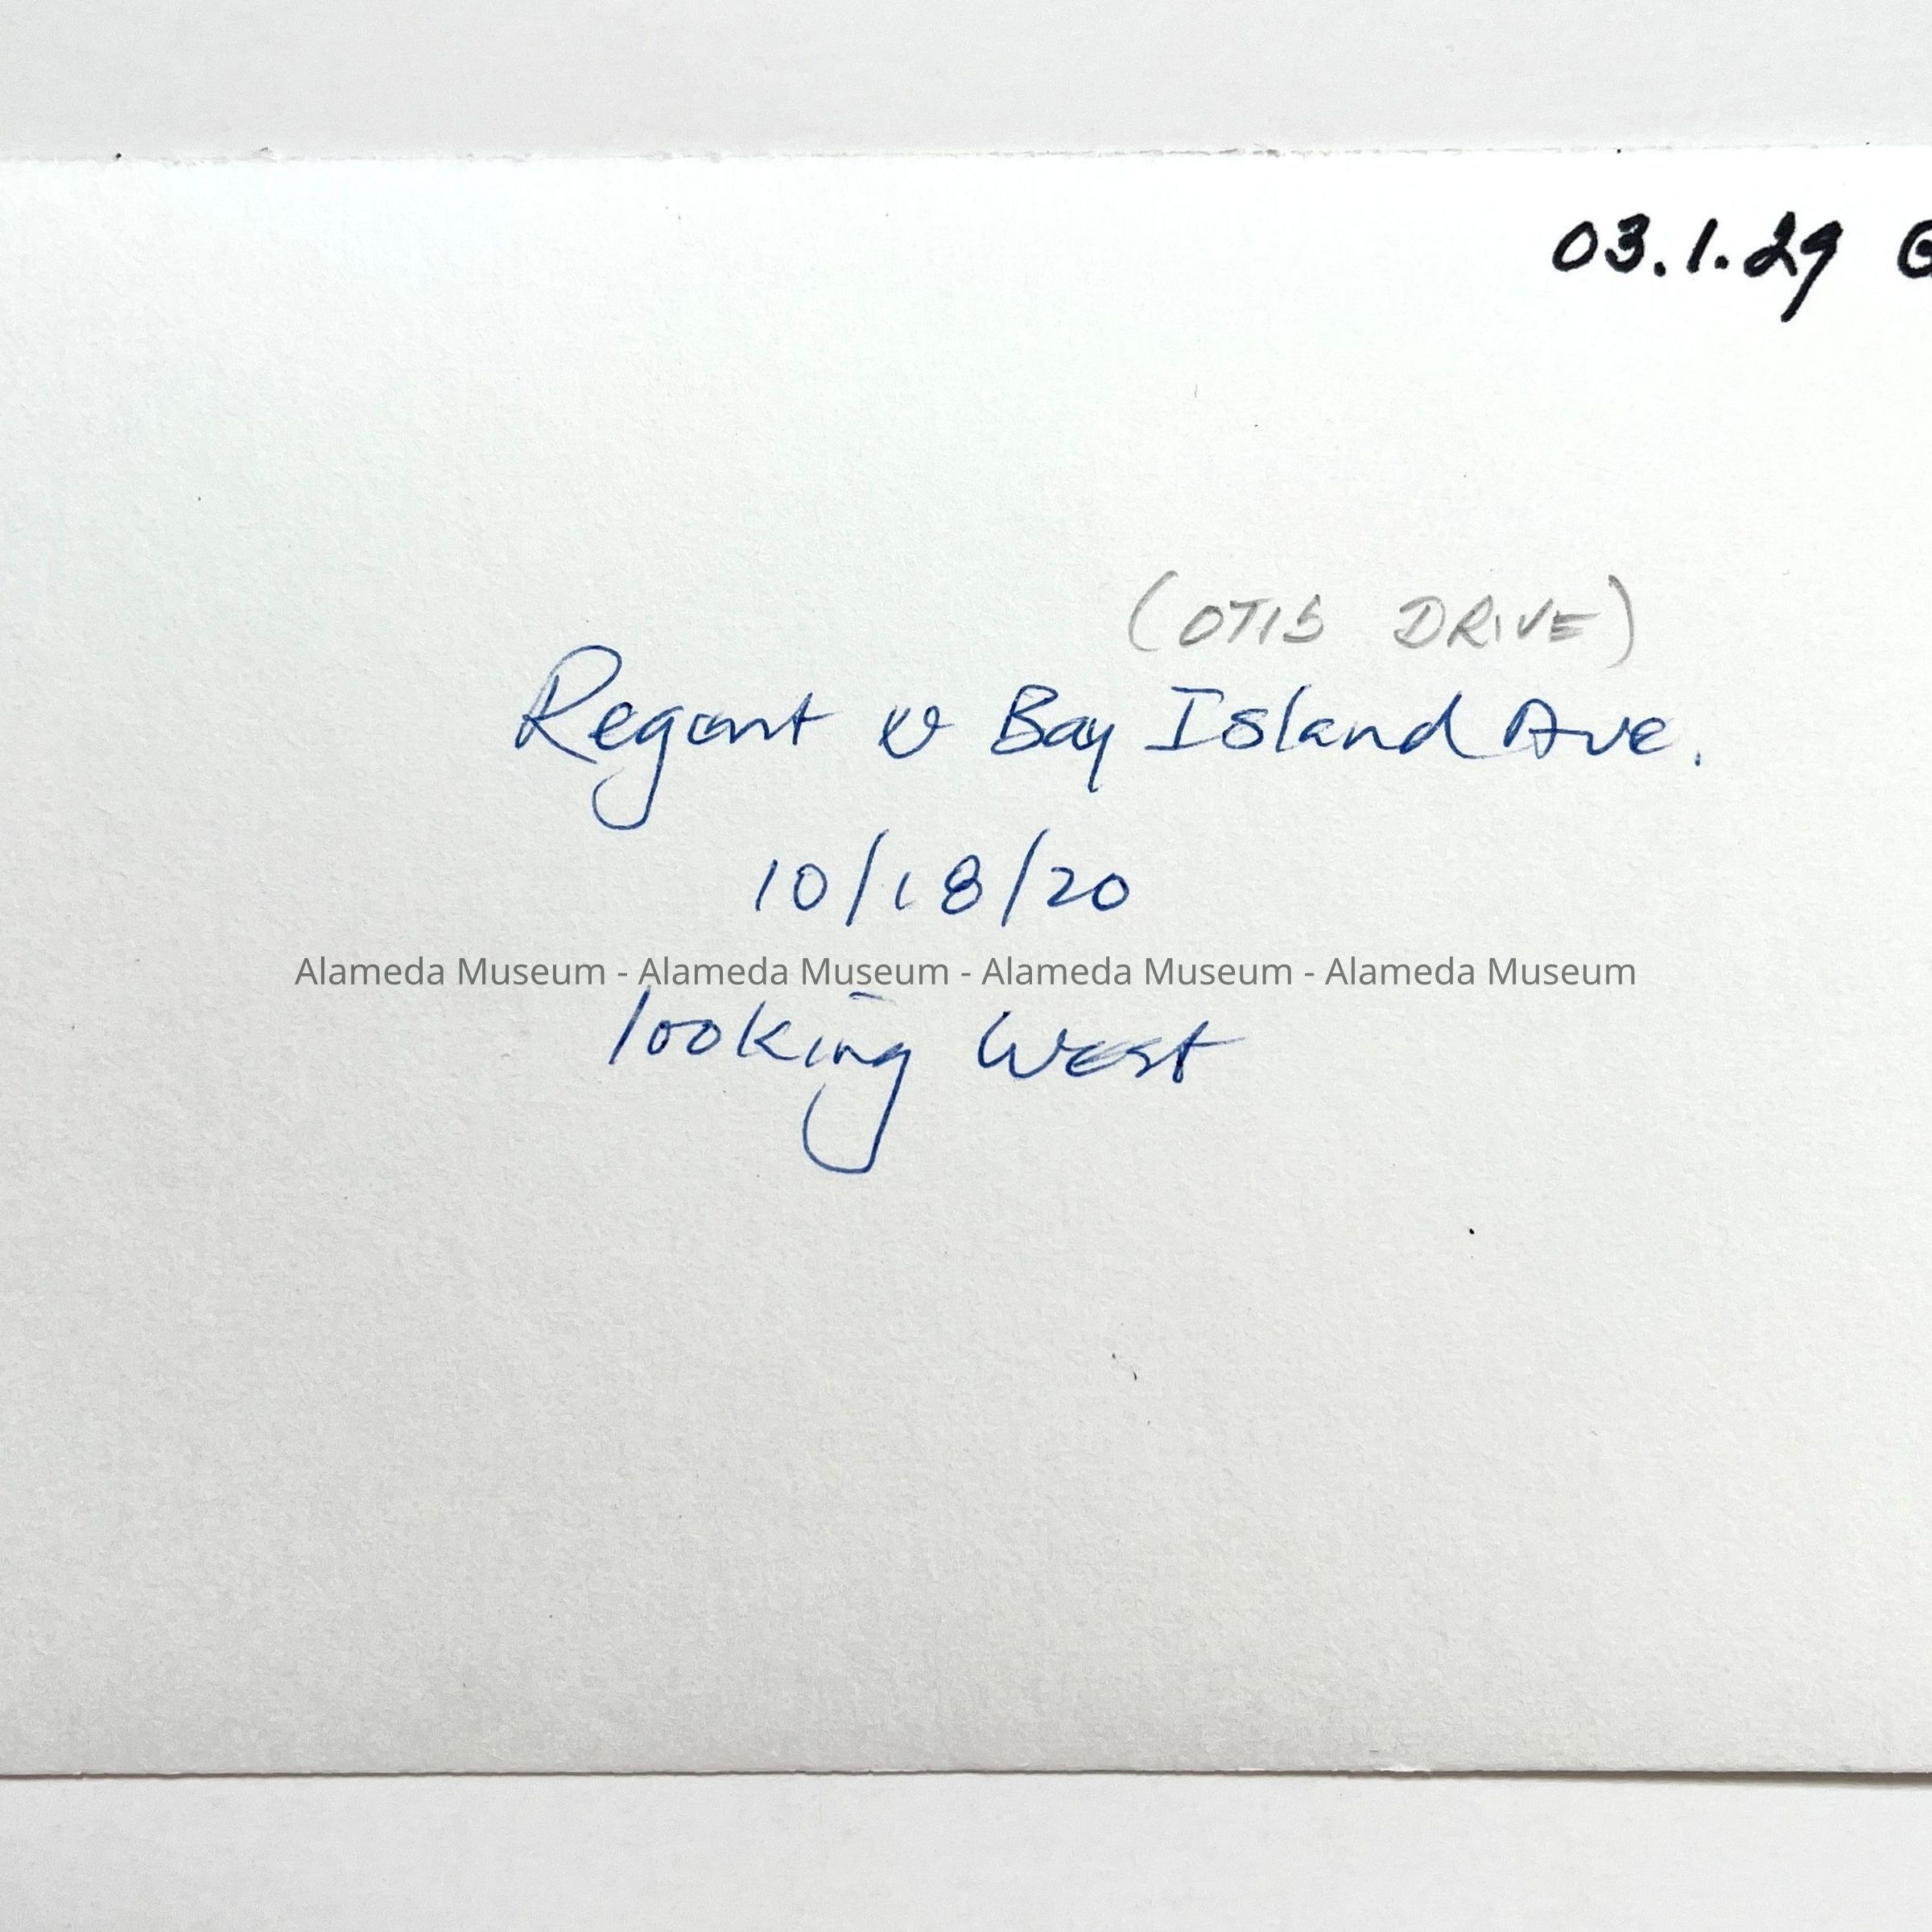 03.1.29
(OTIS DRIVE)
Regent & Bay Island Ave.
10/18/20
Alameda Museum - Alameda Museum - Alameda Museum - Alameda Museum
looking West